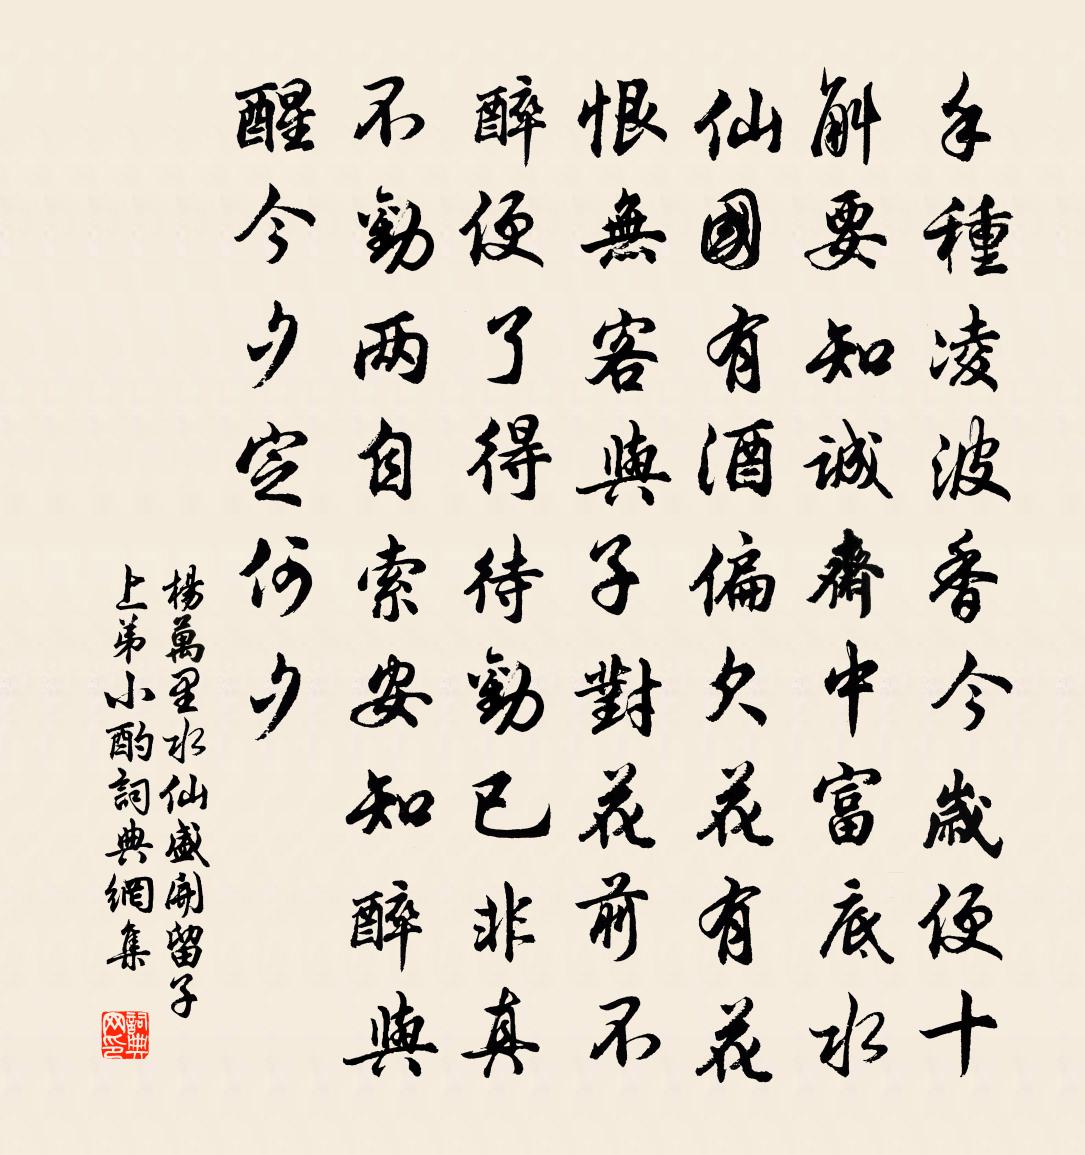 手種凌波香今歲便十
斛要知誠齋中富底水
仙國有酒偏欠花有花
恨無客與子對花前不
醉便了得待勸已非真
不勸两自索安知醉與
醒今夕定何夕
楊萬里水仙盛開留子
上弟小酌詞典網集
詞典网印